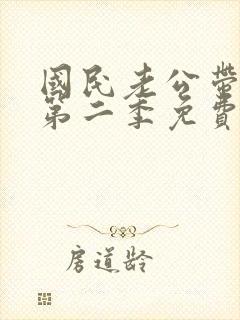 國民老公帶
第二季免費
房道龄